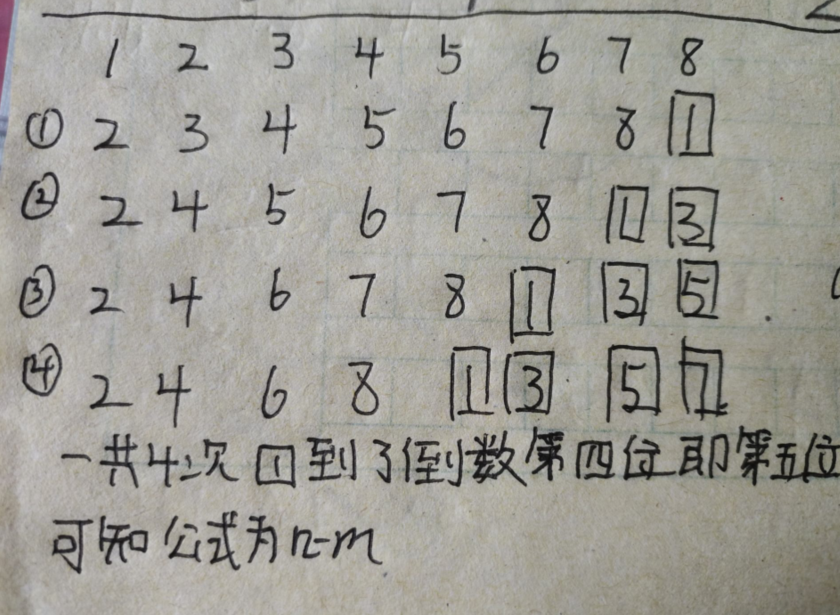 1 2 3 4 5 6 7 8
① 2 3 4 5 6 7 8 1
② 2 4 5 6 7 8 1 3
③ 2 4 6 7 8 1 3 5
④ 2 4 6 8 1 3 5 7
一共4次 1到了倒数第四位即第五位
可知公式为n-m